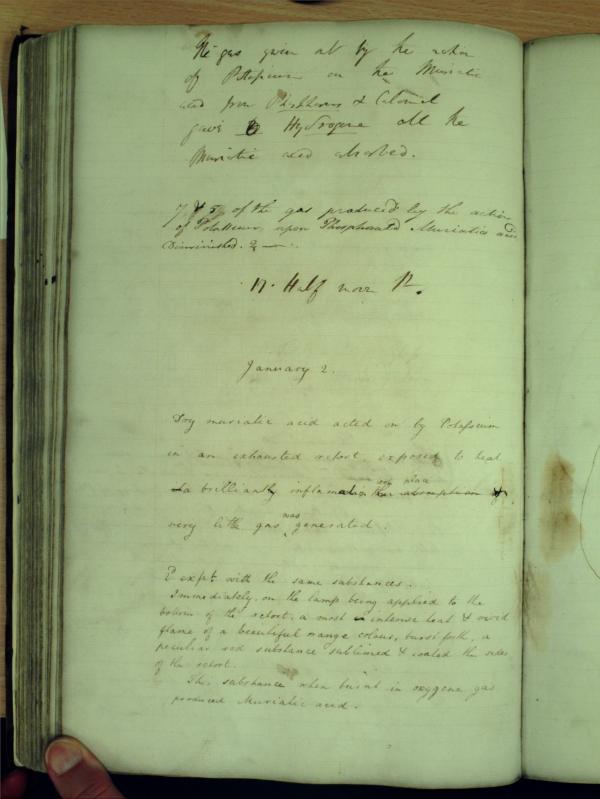 The gas given out by the action
of Potassium on the Muriatic
acid from Phosphorus & Calomel
gave Hydrogene all the
Muriatic acid absorbed.
of the gas produced by the action
of Potassium, upon Phosphorated Muriatic acid
Diminished.
Half more
January 2.
Dry muriatic acid acted on by Potassium
in an exhausted retort, exposed to heat
a brilliant inflammation took place
very little gas was generated.
Expt with the same substances.
Immediately, on the lamp being applied to the
bottom of the retort, a most intense heat & vivid
flame of a beautiful orange colour, burst forth, a
peculiar red substance sublimed & coated the sides
of the retort.
This substance when burnt in oxygene gas
produced Muriatic acid.